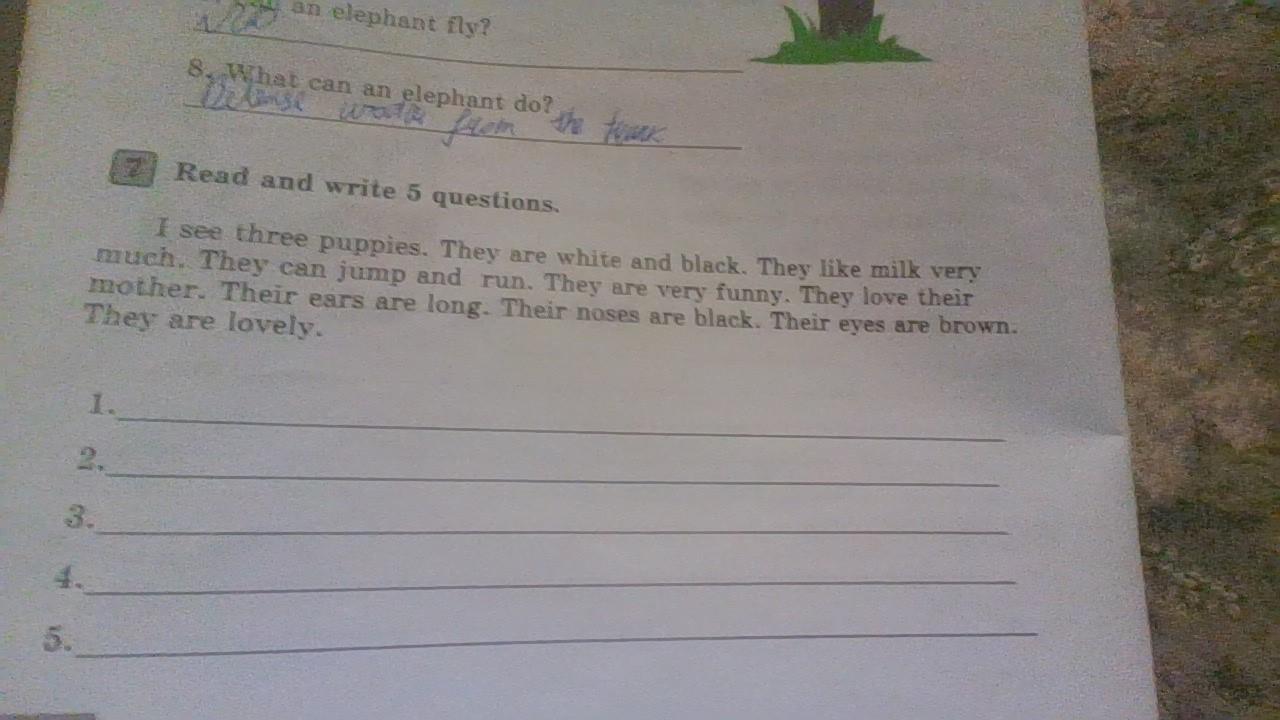 an elephant fly?
8. What can an elephant do?
from the
7 Read and write 5 questions.
I see three puppies. They are white and black. They like milk very
much. They can jump and run. They are very funny. They love their
mother. Their ears are long. Their noses are black. Their eyes are brown.
They are lovely.
1.
2.
3.
4.
5.